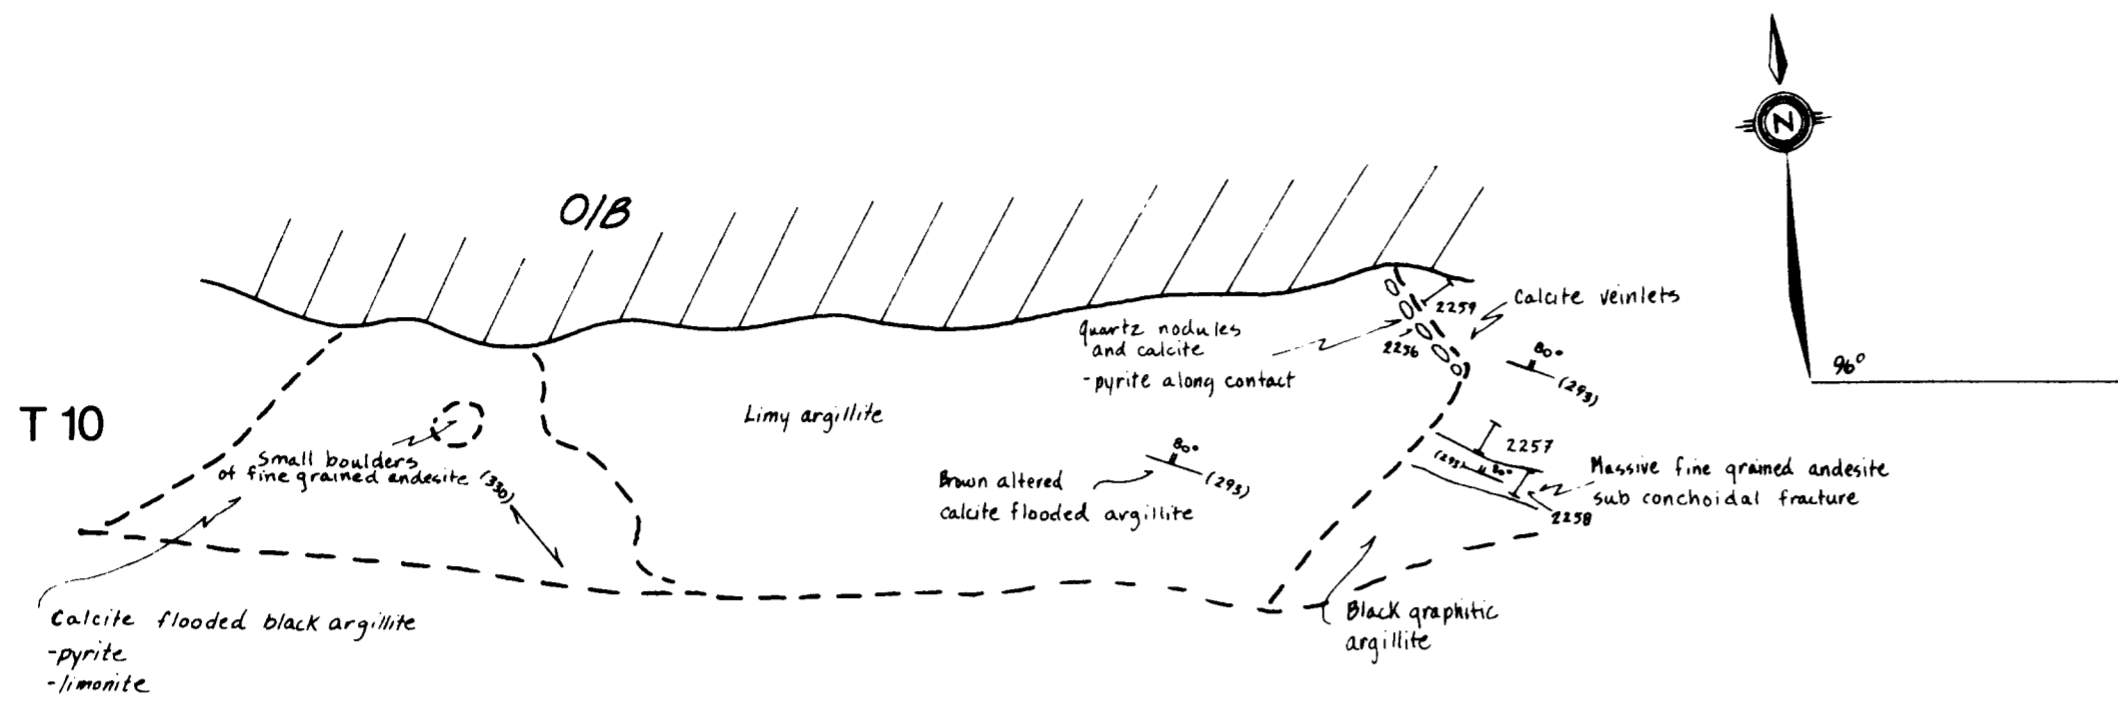 N
O/B
2259
Calcite veinlets
Quartz nodules
and calcite
-pyrite along contact
2256
80°
(293)
96°
T 10
Limy argillite
Small boulders
of fine grained andesite
(330)
80°
(293)
Brown altered
calcite flooded argillite
2257
(293)
80°
Massive fine grained andesite
sub conchoidal fracture
2258
Calcite flooded black argillite
-pyrite
-limonite
Black graphitic
argillite